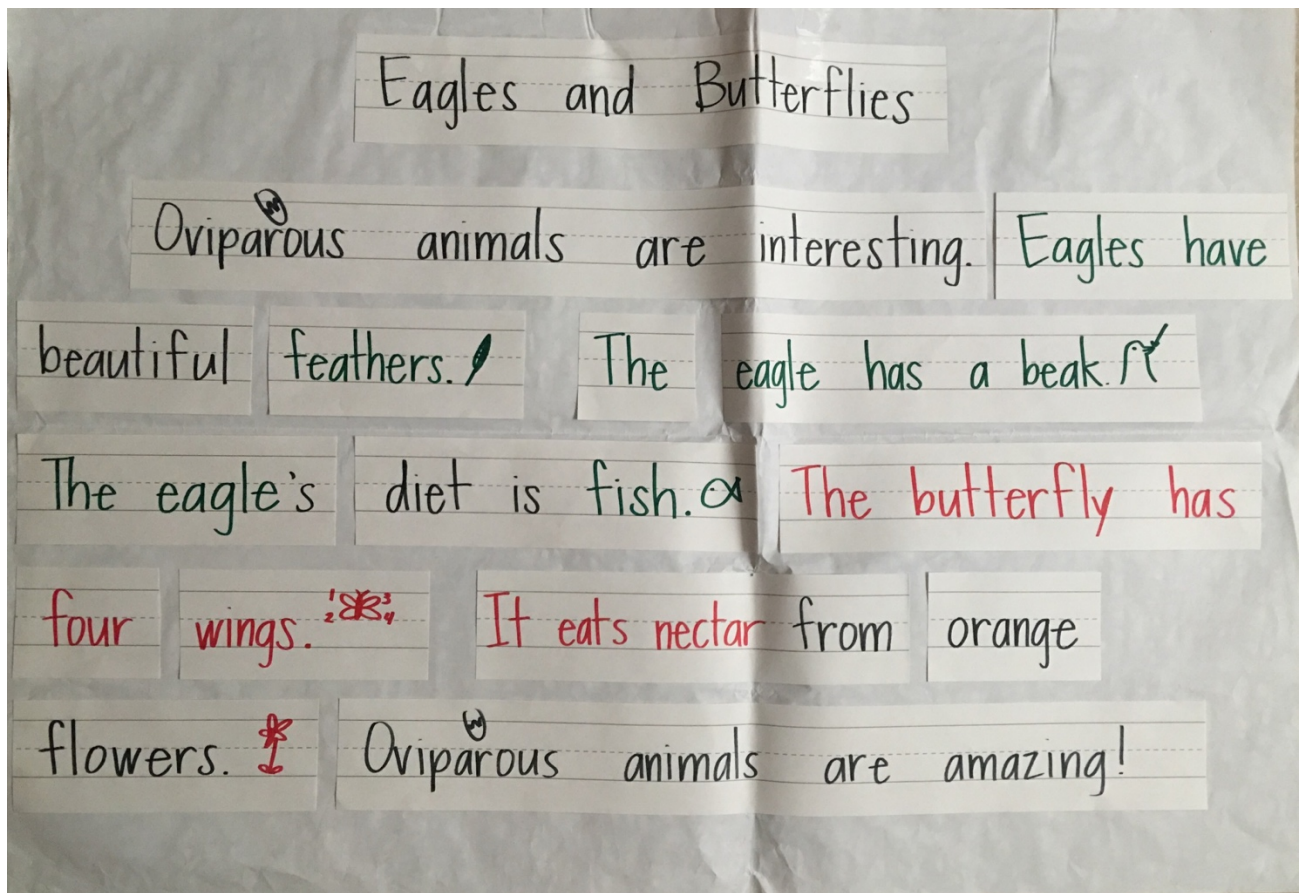 Eagles and Butterflies
Oviparous animals are interesting. Eagles have
beautiful feathers. The eagle has a beak.
The eagle's diet is fish. The butterfly has
four wings. 1 2 3 4 It eats nectar from orange
flowers. Oviparous animals are amazing!